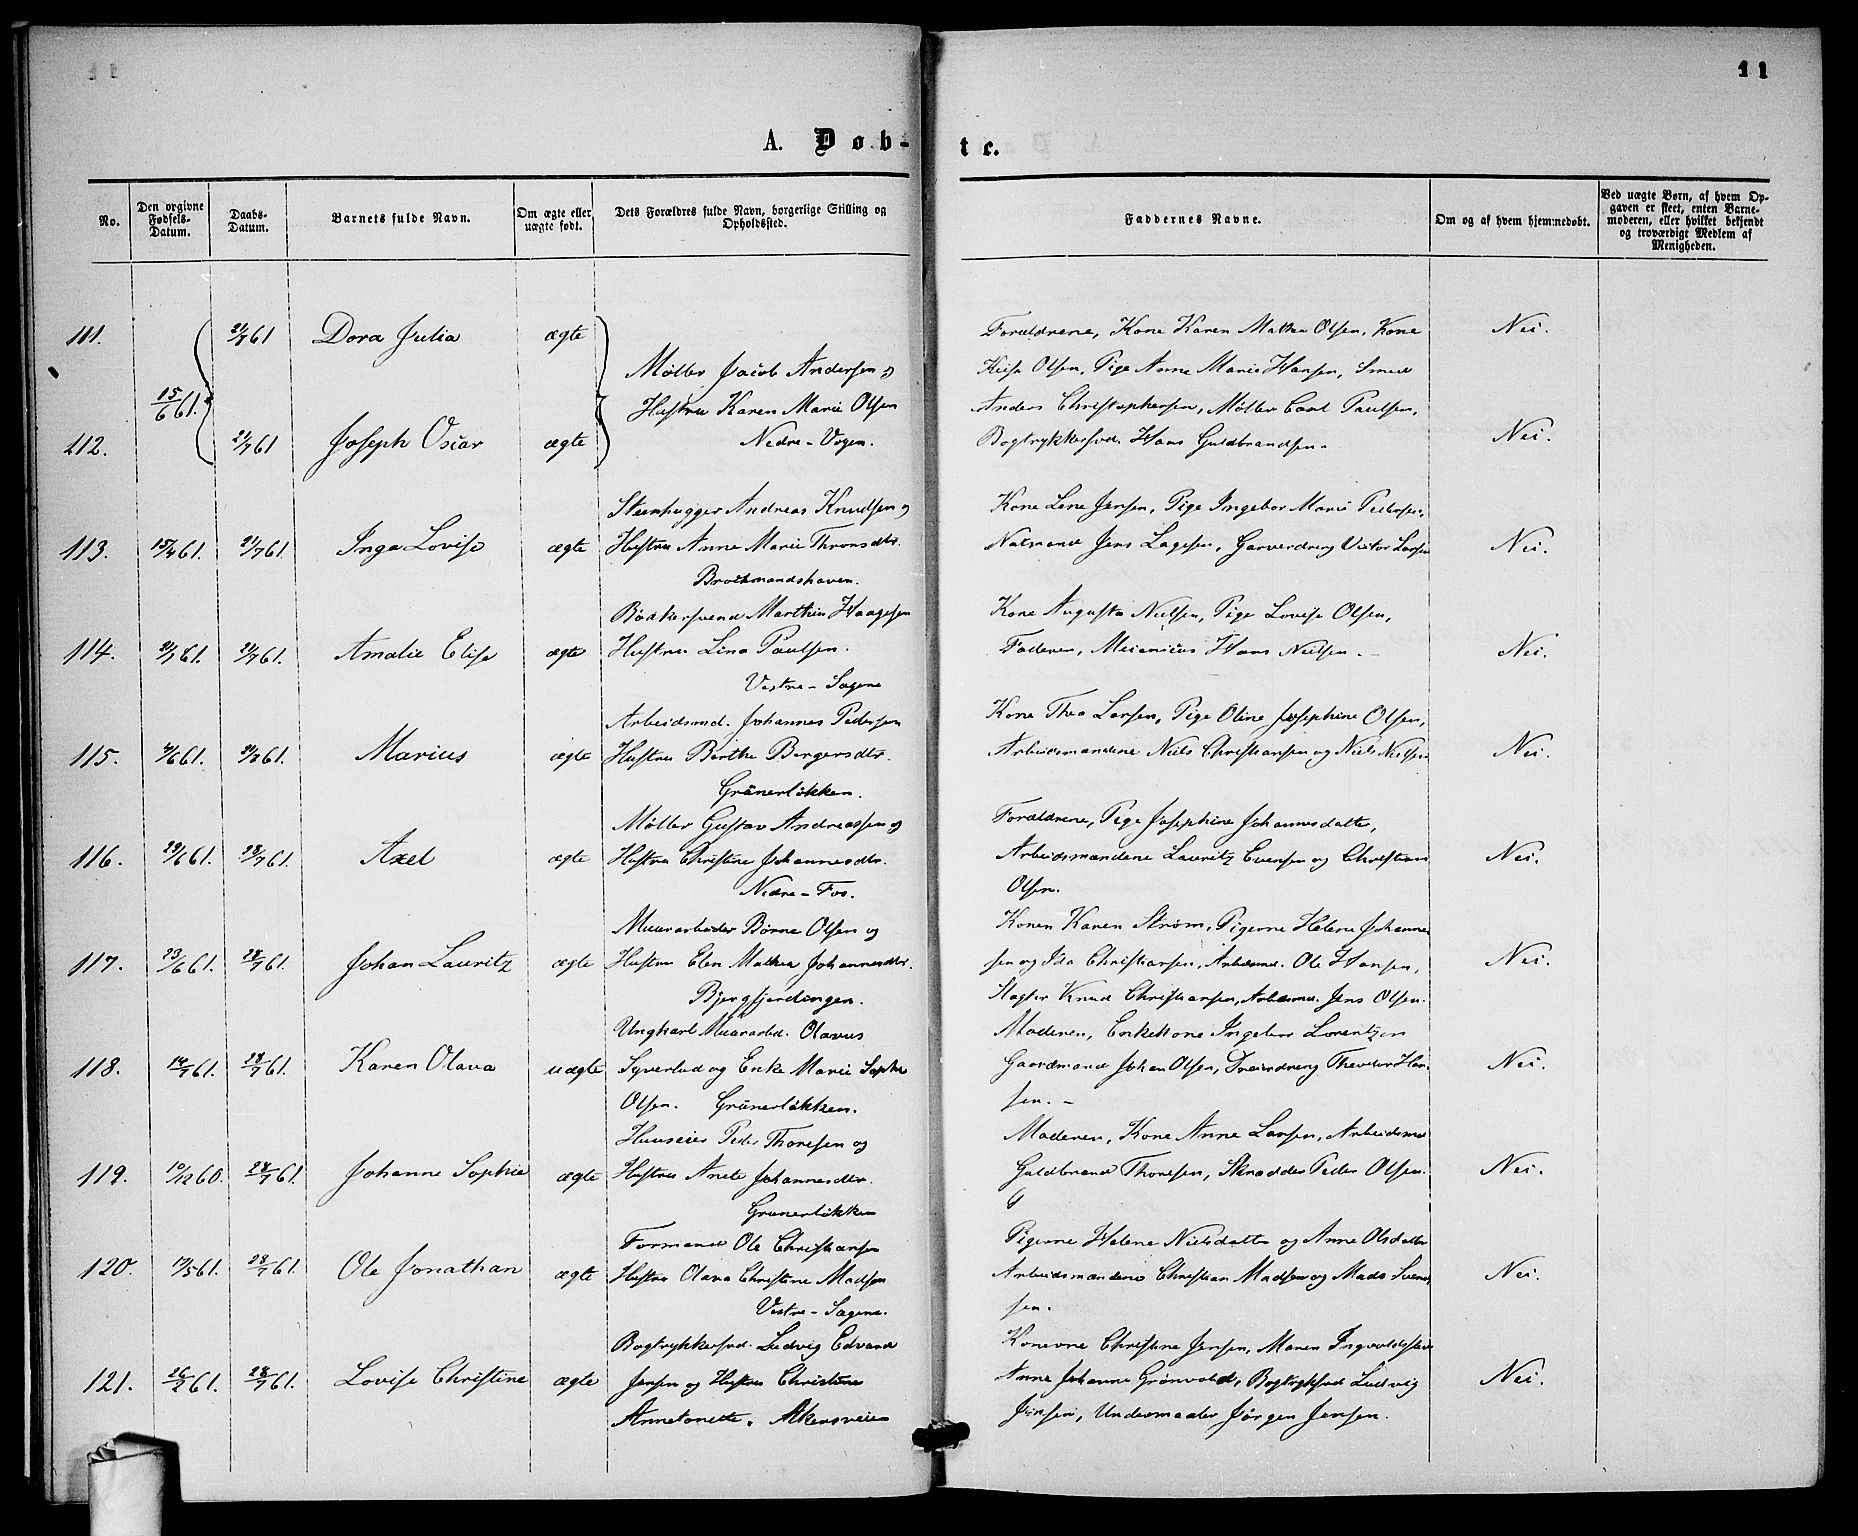 11
A. Døb-
te.
No.
Den opgivne Fødsels-Datum.
Daabs-Datum.
Barnets fulde Navn.
Om ægte eller uægte født.
Dets Forældres fulde Navn, borgerlige Stilling og Opholdssted.
Faddernes Navne.
Om og af hvem hjemmedøbt.
Ved uægte Børn, af hvem Opgaven er skeet, enten Barnemoderen, eller hvilket bekjendt og troværdigt Medlem af Menigheden.
111. 15/6 61. 21/7 61 Dora Julia ægte
Møller Jacob Andersen og
Hustru Karen Marie Olsen
Nedre-Vogen.
Forældrene, Kone Karen Mathea Olsen, Kone
Olsen, Pige Anne Marie Hansen, Smed
Anders Christophersen, Møller Carl Paulsen,
Bogtrykkersvd. Hans Guldbrandsen.
Nei.
112. 21/7 61 Joseph Oscar ægte
Nei.
113. 15/4 61. 21/7 61. Inga Lovise ægte
Steenhugger Andreas Knudsen og
Hustru Anne Marie Thronsdtr.
Brochmandshaven.
Kone Lene Jensen, Pige Ingebor Marie Pedersen,
Jens Lagesen, Garverdreng Victor Larsen
Nei.
114. 61. 21/7 61. Amalie Elise ægte
Bødkersvend Marthin Haagesen
Hustru Lina Paulsen.
Vestre-Sagene
Kone Augusta Nielsen, Pige Lovise Olsen,
Faderen, Mecanicus Hans Nielsen.
Nei.
115. 61. 61. Marius ægte
Arbeidsmd. Johannes Pedersen
Hustru Berthe Bergersdtr.
Grünerløkken.
Kone Thea Larsen, Pige Oline Josephine Olsen,
Arbeidsmændene Niels Christiansen og Niels Nielsen
Nei.
116. 29/6 61. 28/7 61. Axel ægte
Møller Gustav Andreassen og
Hustru Christine Johannesdtr.
Nedre-Fos.
Forældrene, Pige Josephine Johannesdatte,
Arbeidsmændene Lauritz Evensen og Christian
Olsen.
Nei.
117. 23/6 61. 28/7 61. Johan Lauritz ægte
Muurarbeider Børne Olsen og
Hustru Elen Mathea Johannesdtr.
Bjergfjerdingen.
Konen Karen Strøm, Pigerne Helene Johanne-
sen og Ida Christiansen, Arbdsmd. Ole Hansen,
Slagter Knud Christiansen, Arbdsmd. Jens Olsen.
Nei.
118. 14/7 61. 28/7 61. Karen Olava uægte
Ungkarl Muurarbd. Olavus
Syverlud og Enke Marie Sophie
Olsen. Grünerløkken.
Moderen, Enkekone Ingebor Lorentzen
Gaardmand Johan Olsen, Dreierdreng Theodor Han-
sen.
Nei.
119. 10/12 60. 28/7 61. Johanne Sophie ægte
Huuseier Peder Thoresen og
Hustru Anete Johannesdtr.
Grünerløkken
Moderen, Kone Anne Larsen, Arbeidsmd
Guldbrand Thoresen, Skrædder Peder Olsen.
Nei.
120. 19/5 61. 28/7 61. Ole Jonathan ægte
Formand Ole Christiansen
Hustru Olava Christine Madsen
Vestre-Sagene.
Pigerne Helene Nielsdatter og Anne Olsdatter
Arbeidsmændene Christian Madsen og Mads Svend-
sen.
Nei.
121. 26/2 61. 28/7 61. Lovise Christine ægte
Bogtrykkersvd. Ludvig Edvard
Jensen og Hustru Christine
Annetonette. Akersveien
Konerne Christine Jensen, Maren Ingvoldsen
Anne Johanne Grønvold, Bogtryksvd Ludvig
Jensen, Undermaaler Jørgen Jensen.
Nei.